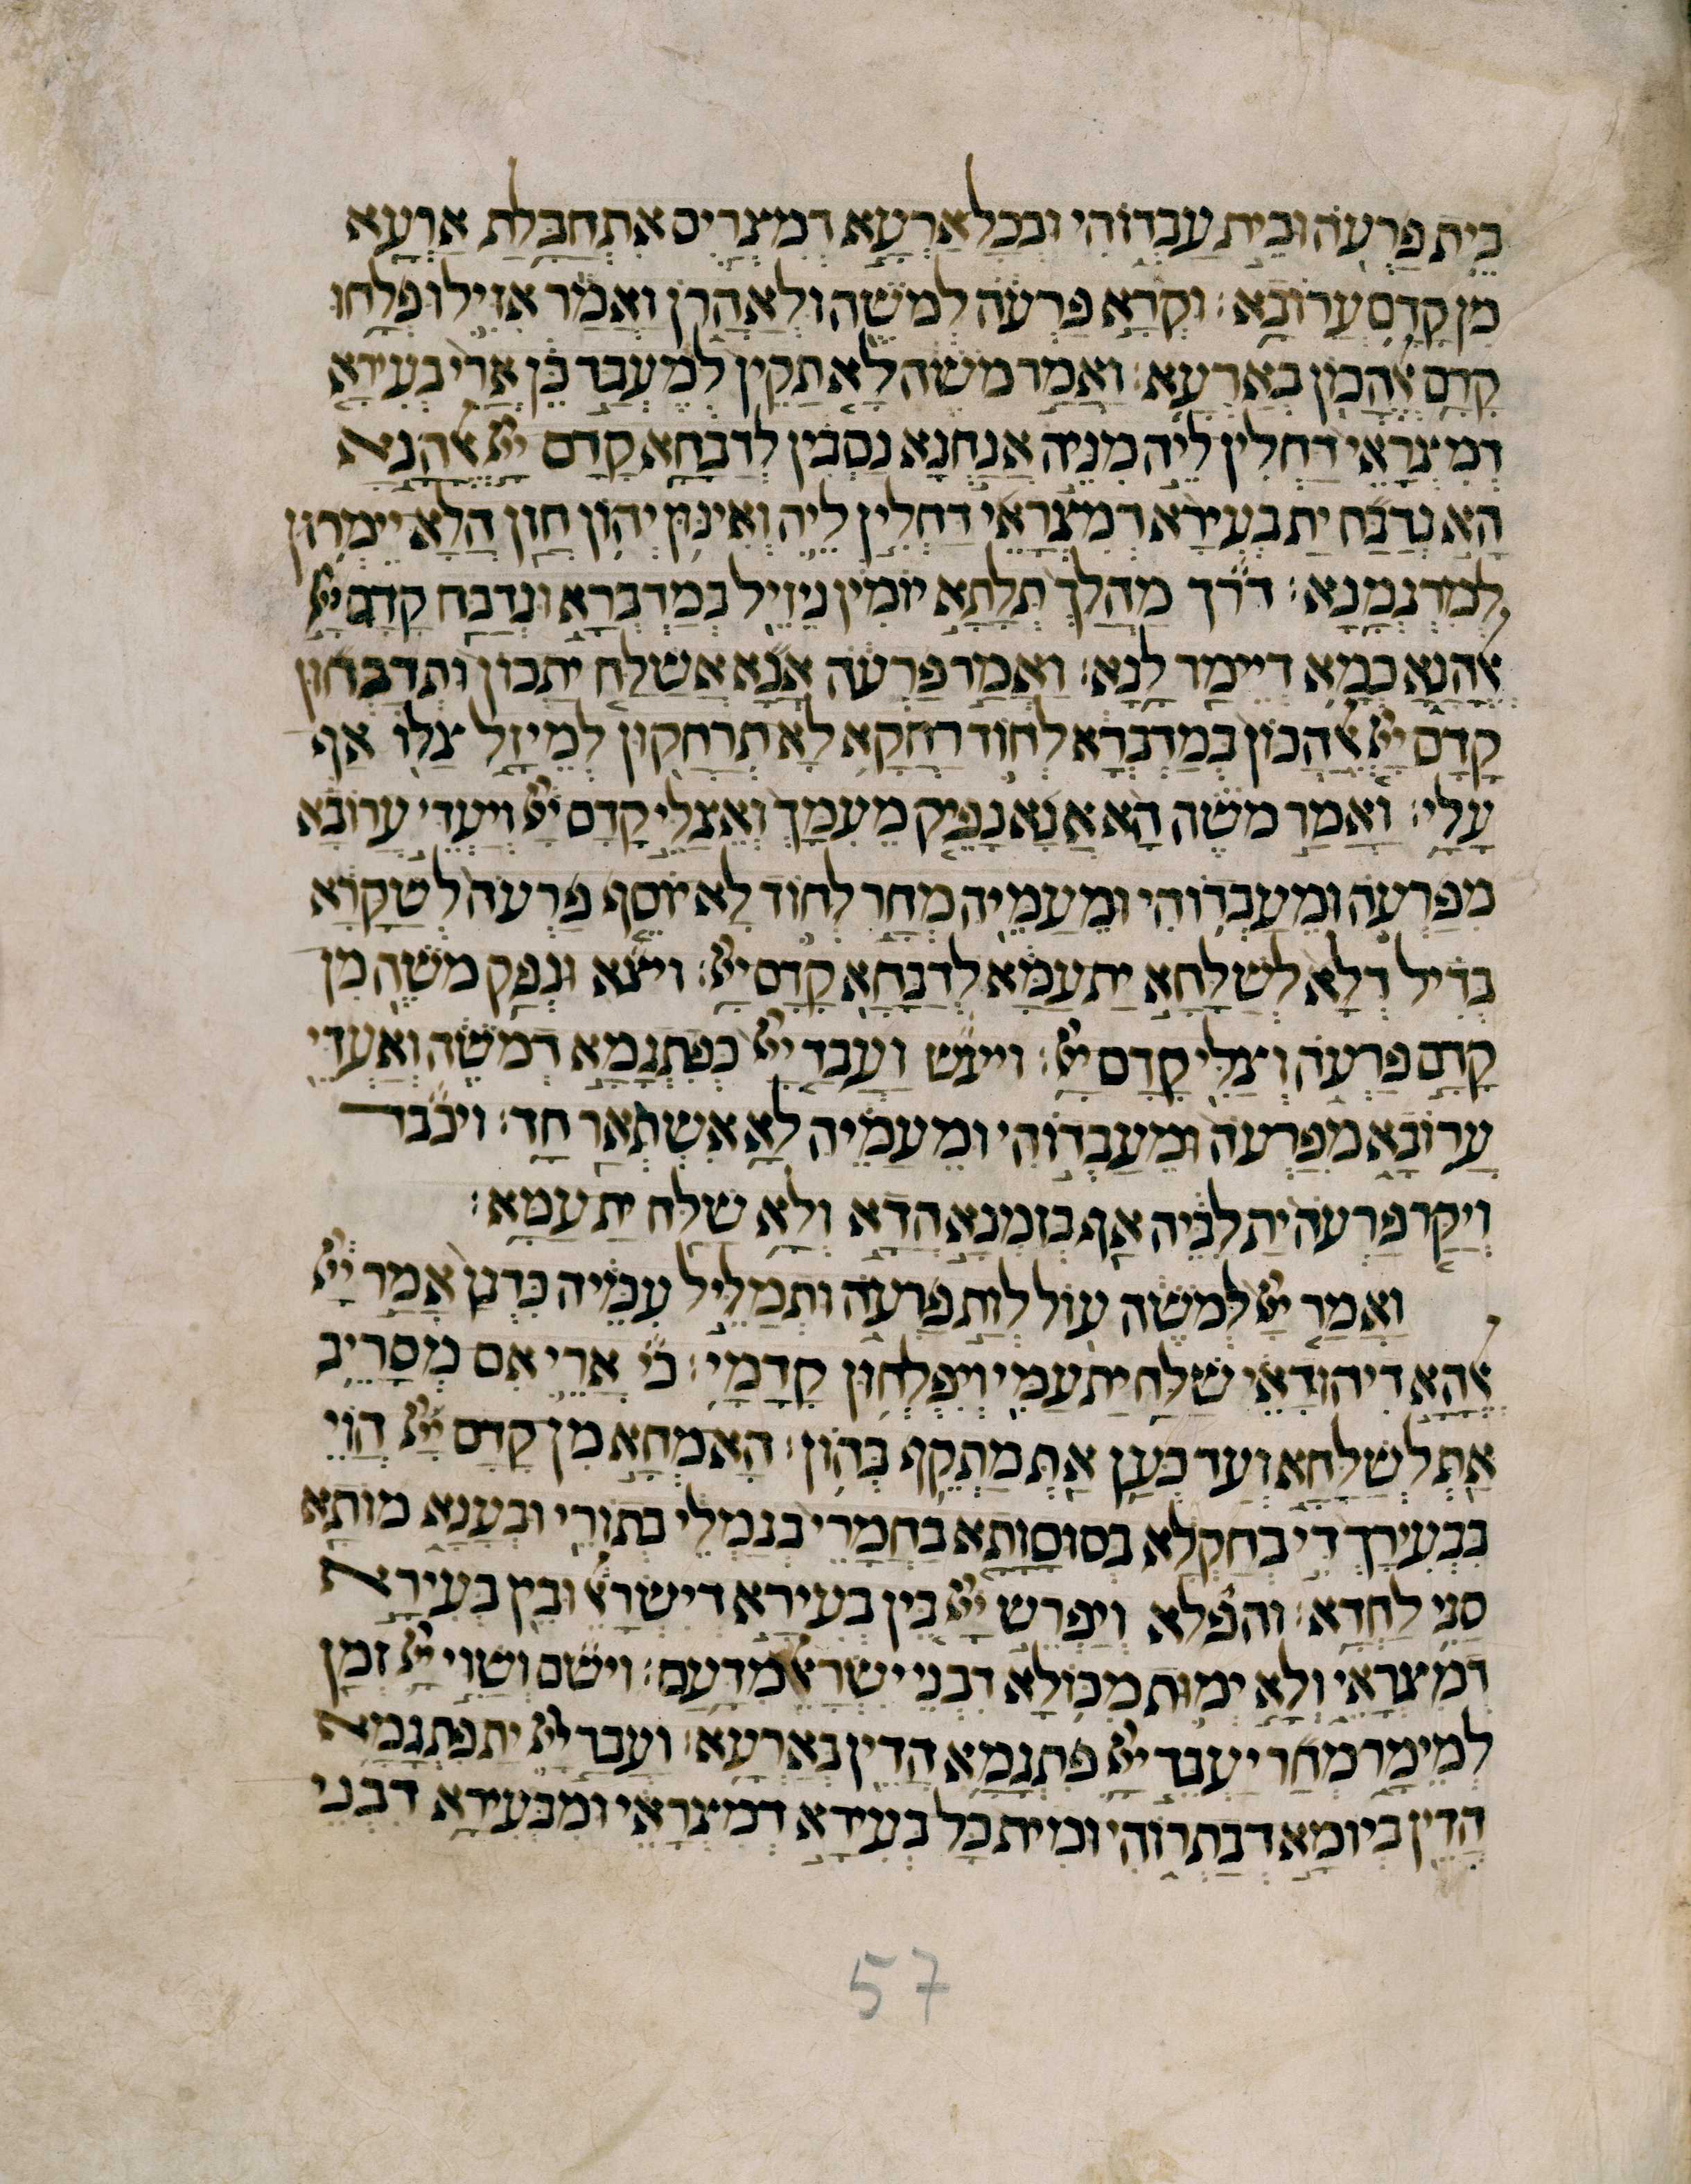 בֵית פַרְעֹה וּבֵית עַבְדוֹהִי וּבְכָל אַרְעָא דְמִצְרַיִם אִתְחַבָּלַת אַרְעָא
מִן קֳדָם עָרוֹבָא׃ וּקְרָא פַרְעֹה לְמֹשֶה וּלְאַהֲרֹן וַאֲמַר אִזִילוּ פְלָחוּ
קֳדָם אֱלָהֲכוֹן בְּאַרְעָא׃ וַאֲמַר מֹשֶה לָא תַקֵין לְמֶעְבַד כֵּן אֲרֵי בְעִירָא
דְמִצְרָאֵי דָחֲלִין לֵיהּ מִנֵּיהּ אֲנַחְנָא נָסְבִין לְדַבָּחָא קֳדָם יְיָ אֱלָהַנָא
הָא נְדַבַּח יַת בְּעִירָא דְמִצְרָאֵי דָּחֲלִין לֵיהּ וְאִינּוּן יְהוֹן חָזַן הֲלָא יֵימְרוּן
לְמִרְגְמַנָא׃ דרך מַהֲלַךְ תְּלָתָא יוֹמִין נֵיזֵיל בְּמַדְבְּרָא וּנְדַבַּח קֳדָם יְיָ
אֱלָהַנָא כְמָא דְיֵימַר לַנָא׃ וַאֲמַר פַּרְעֹה אֲנָא אֲשַלַּח יַתְכוֹן וּתְדַבְּחוּן
קֳדָם יְיָ אֱלָהֲכוֹן בְּמַדְבְּרָא לְחוֹד רַחָקָא לָא תְרַחֲקוּן לְמֵיזַל צַלּוֹ אַף
עֲלָי׃ וַאֲמַר מֹשֶה הָא אֲנָא נָפֵיק מֵעִמָּךְ וַאֲצַלֵּי קֳדָם יְיָ וְיֶעְדֵּי עָרוֹבָא
מִפַּרְעֹה וּמֵעַבְדוֹהִי וּמֵעַמֵּיהּ מְחָר לְחוֹד לָא יוֹסֵף פַּרְעֹה לְשַקָּרָא
בְּדִיל דְּלָא לְשַלָּחָא יַת עַמָּא לְדַבָּחָא קֳדָם יְיָ׃ ויצא וּנְפַק מֹשֶה מִן
קֳדָם פַּרְעֹה וְצַלִּי קֳדָם יְיָ׃ ויעש וַעֲבַד יְיָ כְּפִתְגָמָא דְמֹשֶה וְאַעְדִּי
עָרוֹבָא מִפַּרְעֹה וּמֵעַבְדוֹהִי וּמֵעַמֵּיהּ לָא אִשְתְּאַר חָד׃ ויכבד
וְיַקַּר פַּרְעֹה יַת לִבֵּיהּ אַף בְּזִמְנָא הָדָא וְלָא שַלַּח יַת עַמָּא׃
וַאֲמַר יְיָ לְמֹשֶה עוֹל לְוָת פַּרְעֹה וּתְמַלֵּיל עִמֵּיהּ כִּדְנָן אֲמַר יְיָ
אֱלָהָא דִיהוּדָאֵי שַלַּח יַת עַמִּי וְיִפְלְחוּן קֳדָמָי׃ כי אֲרֵי אִם מְסָרֵיב
אַתְּ לְשַלָּחָא וְעַד כְּעַן אַתְּ מַתְקֵיף בְּהוֹן׃ הָא מַחָא מִן קֳדָם יְיָ הָוְיָא
בִּבְעִירָךְ דִּי בְחַקְלָא בְּסוּסָוָתָא בַּחֲמָרֵי בְּגַמְלֵי בְּתוֹרֵי וּבְעָנָא מוֹתָא
סַגִּי לַחֲדָא׃ והפלא וְיַפְרֵש יְיָ בֵּין בְּעִירָא דְיִשְרָאֵל וּבֵין בְּעִירָא
דְּמִצְרָאֵי וְלָא יְמוּת מִכּוֹלָא דִבְנֵי יִשְרָאֵל מִדָּעַם׃ וישם וְשַוִּי יְיָ זְמַן
לְמֵימָר מְחָר יַעֲבֵיד יְיָ פִּתְגָמָא הָדֵין בְּאַרְעָא׃ וַעֲבַד יְיָ יַת פִּתְגָמָא
הָדֵין בְּיוֹמָא דְבַתְרוֹהִי וּמִית כָּל בְּעִירָא דְמִצְרָאֵי וּמִבְּעִירָא דִבְנֵי
57